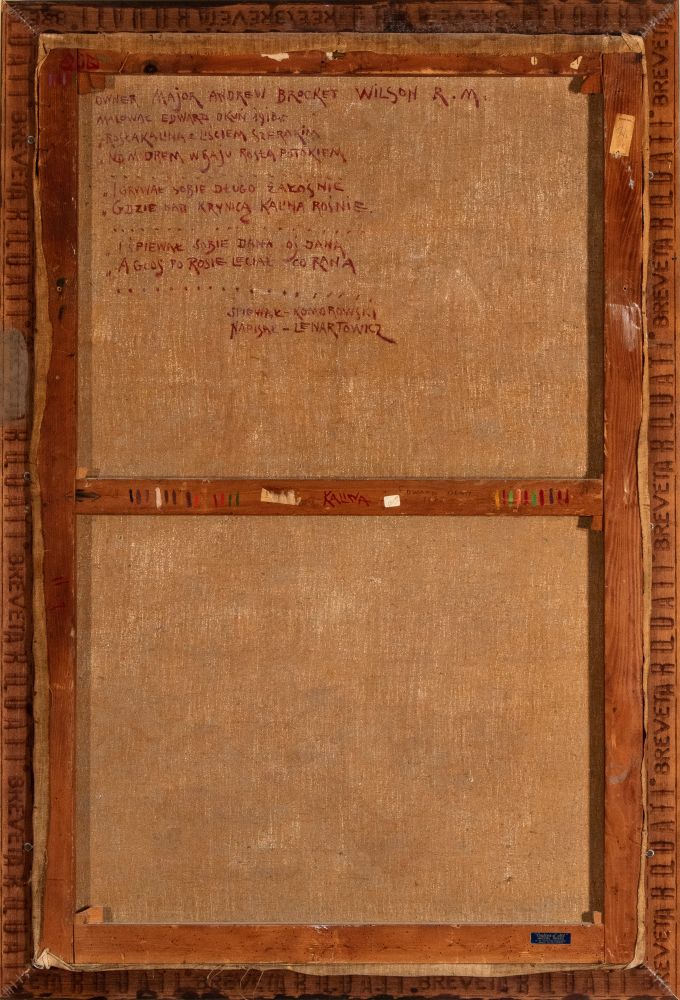 OWNER MAJOR ANDREW BROCKET WILSON R.M.
MALOWAŁ EDWARD OKUŃ 1918 r.
„ROSŁA KALINA z LIŚCIEM SZEROKIM
„NAD MODREM W GAJU ROSŁA POTOKIEM
„I GRYWAŁ SOBIE DŁUGO ŻAŁOŚNIE
„GDZIE NAD KRYNICĄ KALINA ROŚNIE.
„I ŚPIEWAŁ SOBIE DANA OJ DANA
„A GŁOS PO ROSIE LECIAŁ CO RANA
ŚPIEWAK - KOMOROWSKI
NAPISAŁ - LENARTOWICZ
KALINA
EDWARD OKUŃ
BREVETTATI